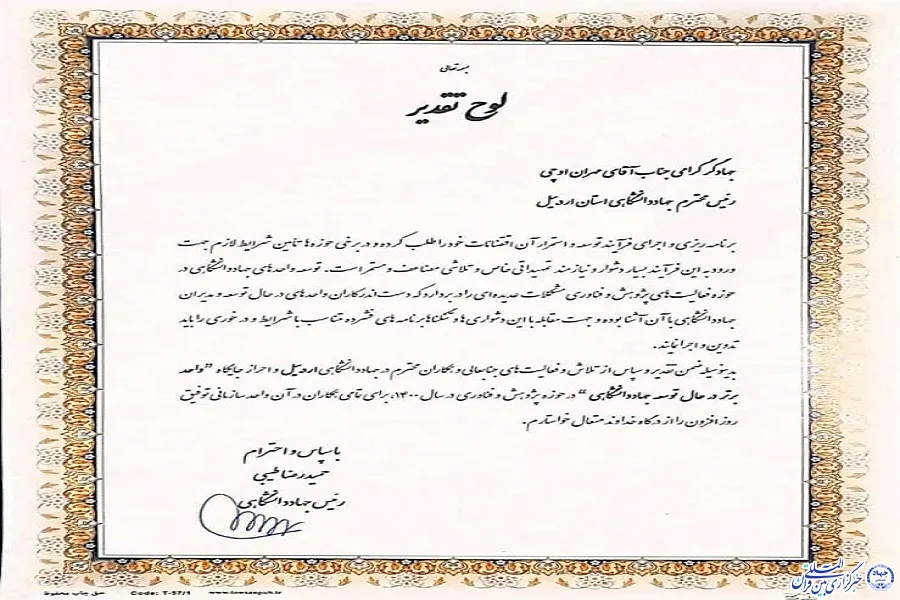 بسمه تعالی
لوح تقدیر
جهادگر گرامی جناب آقای مهران اوچی
رئیس محترم جهاددانشگاهی استان اردبیل
برنامه ریزی و اجرای فرآیند توسعه و استمرار آن اقتضائات خود را طلب کرده و در برخی حوزه ها تأمین شرایط لازم جهت
ورود به این فرآیند بسیار دشوار و نیازمند تمهیداتی خاص و تلاشی مضاعف و مستمر است. توسعه واحدهای جهاددانشگاهی در
حوزه فعالیت های پژوهش و فناوری مشکلات عدیده ای را در بر دارد که دست اندرکاران واحدهای در حال توسعه و مدیران
جهاددانشگاهی با آن آشنا بوده و جهت مقابله با این دشواری ها و تنگناها برنامه های فشرده متناسب با شرایط و در خوری را باید
تدوین و اجرا نمایند.
بدینوسیله ضمن تقدیر و سپاس از تلاش و فعالیت های جنابعالی و همکاران محترم در جهاددانشگاهی اردبیل و احراز جایگاه "واحد
برتر در حال توسعه جهاددانشگاهی" در حوزه پژوهش و فناوری در سال ۱۴۰۰، برای تمامی همکاران در آن واحد سازمانی توفیق
روز افزون را از درگاه خداوند متعال خواستارم.
با سپاس و احترام
حمیدرضا طیبی
رئیس جهاددانشگاهی
حق چاپ محفوظ Code: T-57/1
خبرگزاری بین المللی قرآن
جهاد